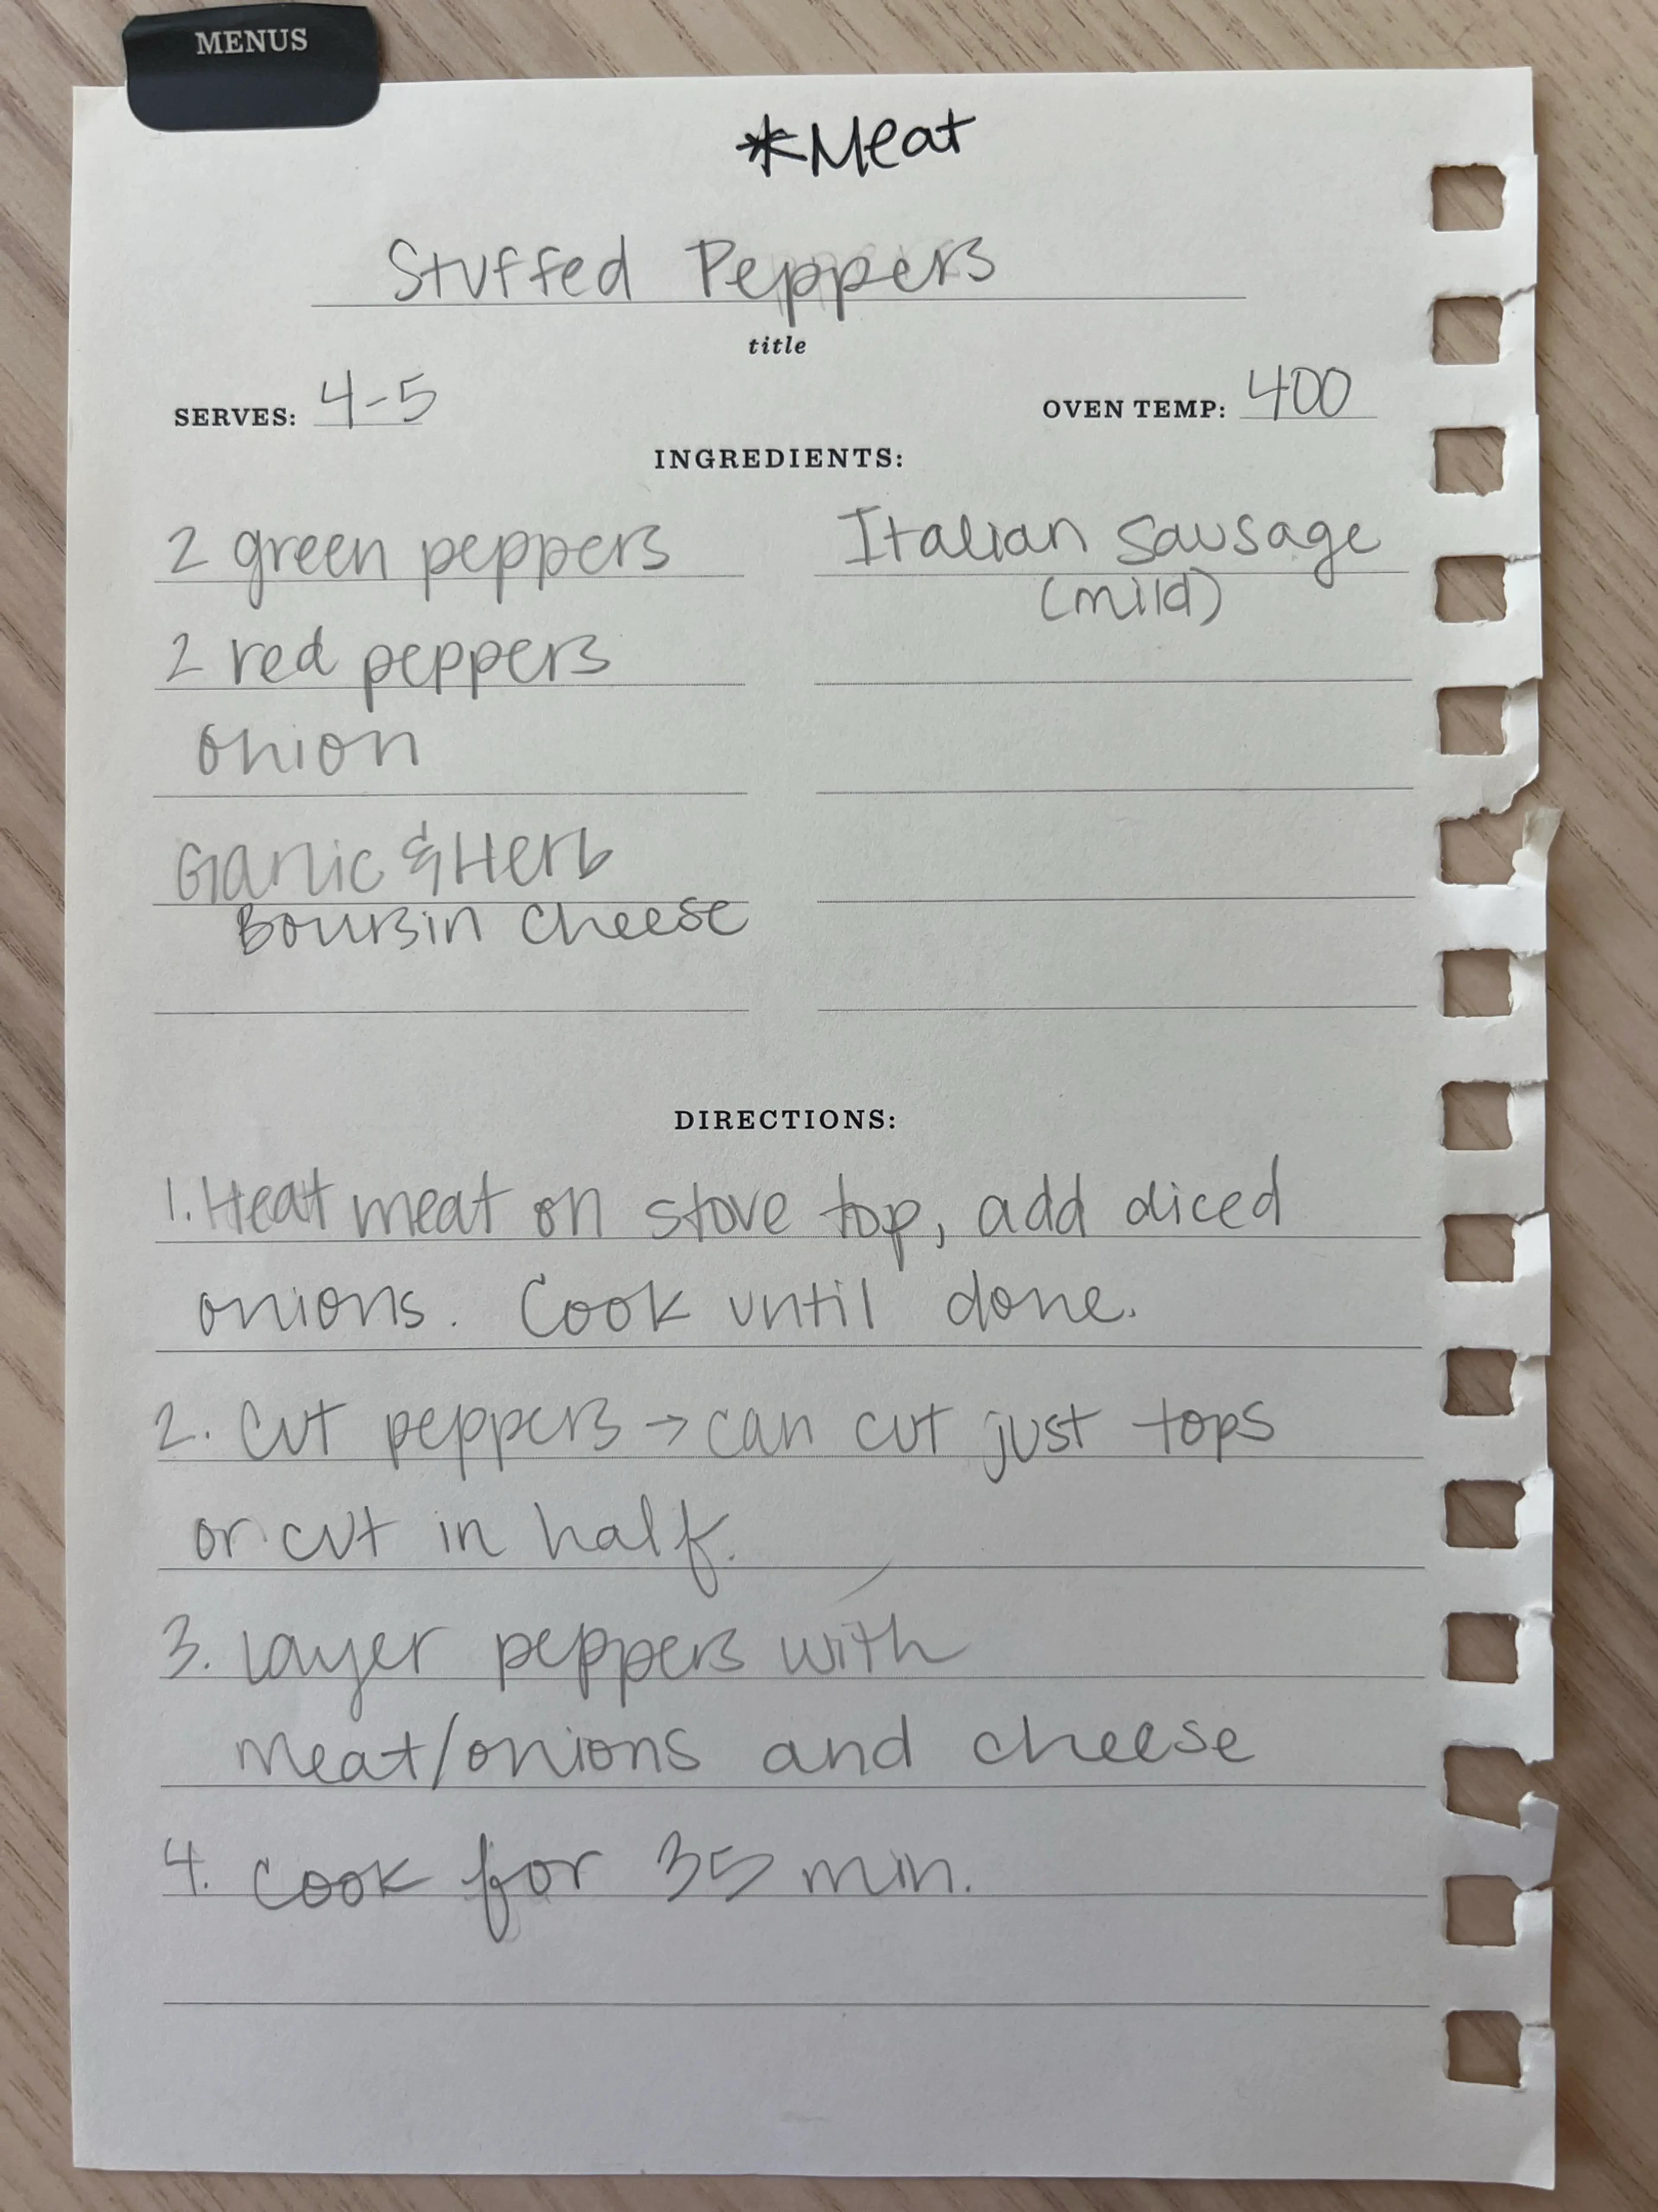 MENUS
*Meat
Stuffed Peppers
title
SERVES: 4-5 OVEN TEMP: 400
INGREDIENTS:
2 green peppers
2 red peppers
onion
Garlic & Herb
Boursin Cheese
Italian Sausage
(mild)
DIRECTIONS:
1. Heat meat on stove top, add diced
onions. Cook until done.
2. Cut peppers → can cut just tops
or cut in half.
3. Layer peppers with
meat/onions and cheese
4. Cook for 35 min.